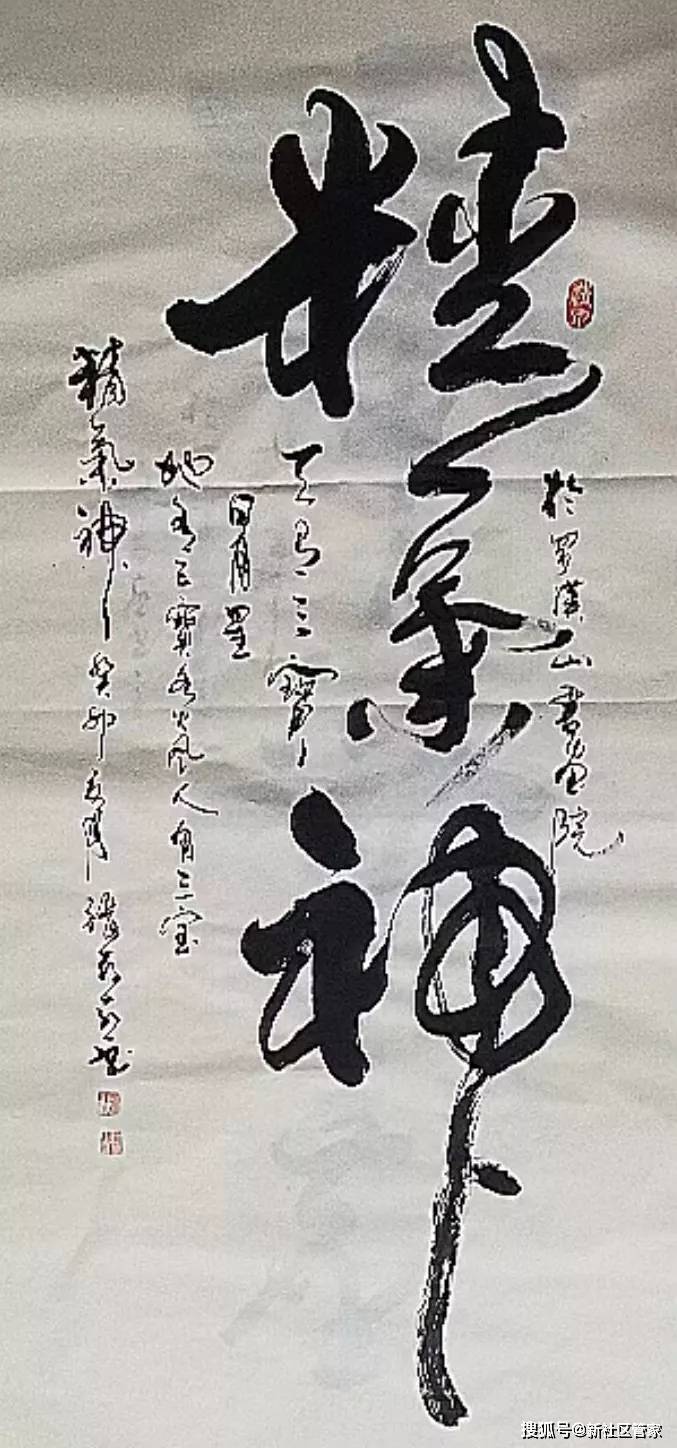 精氣神
於羅漢山書画院
天有三寶
日月星
地有三寶水火風人有三宝
精氣神癸卯
書
搜狐号@新社区管家